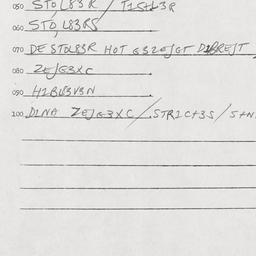 050 STOL83R / T1SHL3R
060 STO,L83RS
070 DE STOL83R HOT G3ZEJGT D1BREJT
080 ZEJG3XC
090 H1BL3V3N
100 D1NA ZEJG3XC / STR1C+3S / S+N